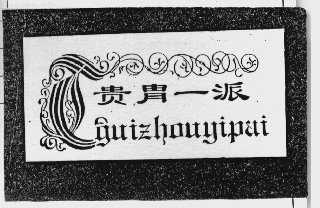 贵胄一派
guizhouyipai